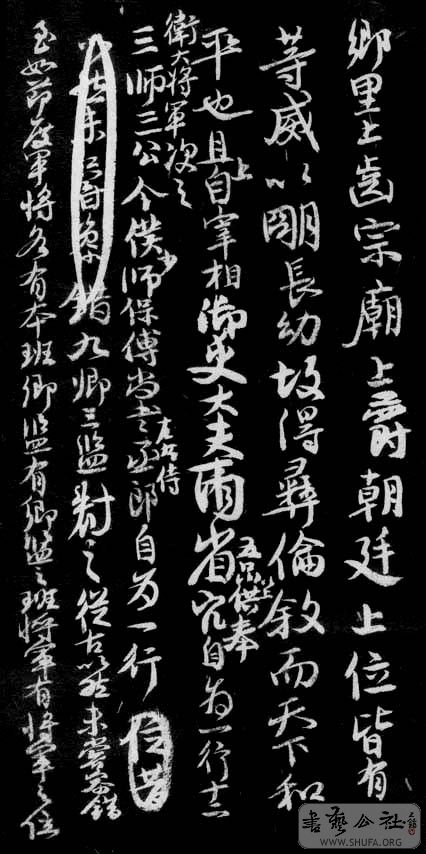 鄉里上齒宗廟上爵朝廷上位皆有
等威以明長幼故得彝倫敘而天下和
平也且上自宰相御史大夫兩省五品以上供奉官自為一行十二
衛大將軍次之
三師三公令僕少師保傅尚書左右丞侍郎自為一行
九卿三監對之從古以然未嘗參錯
至如節度軍將各有本班卿監有卿監之班將軍有將軍之位
書藝公社
WWW.SHUFA.ORG